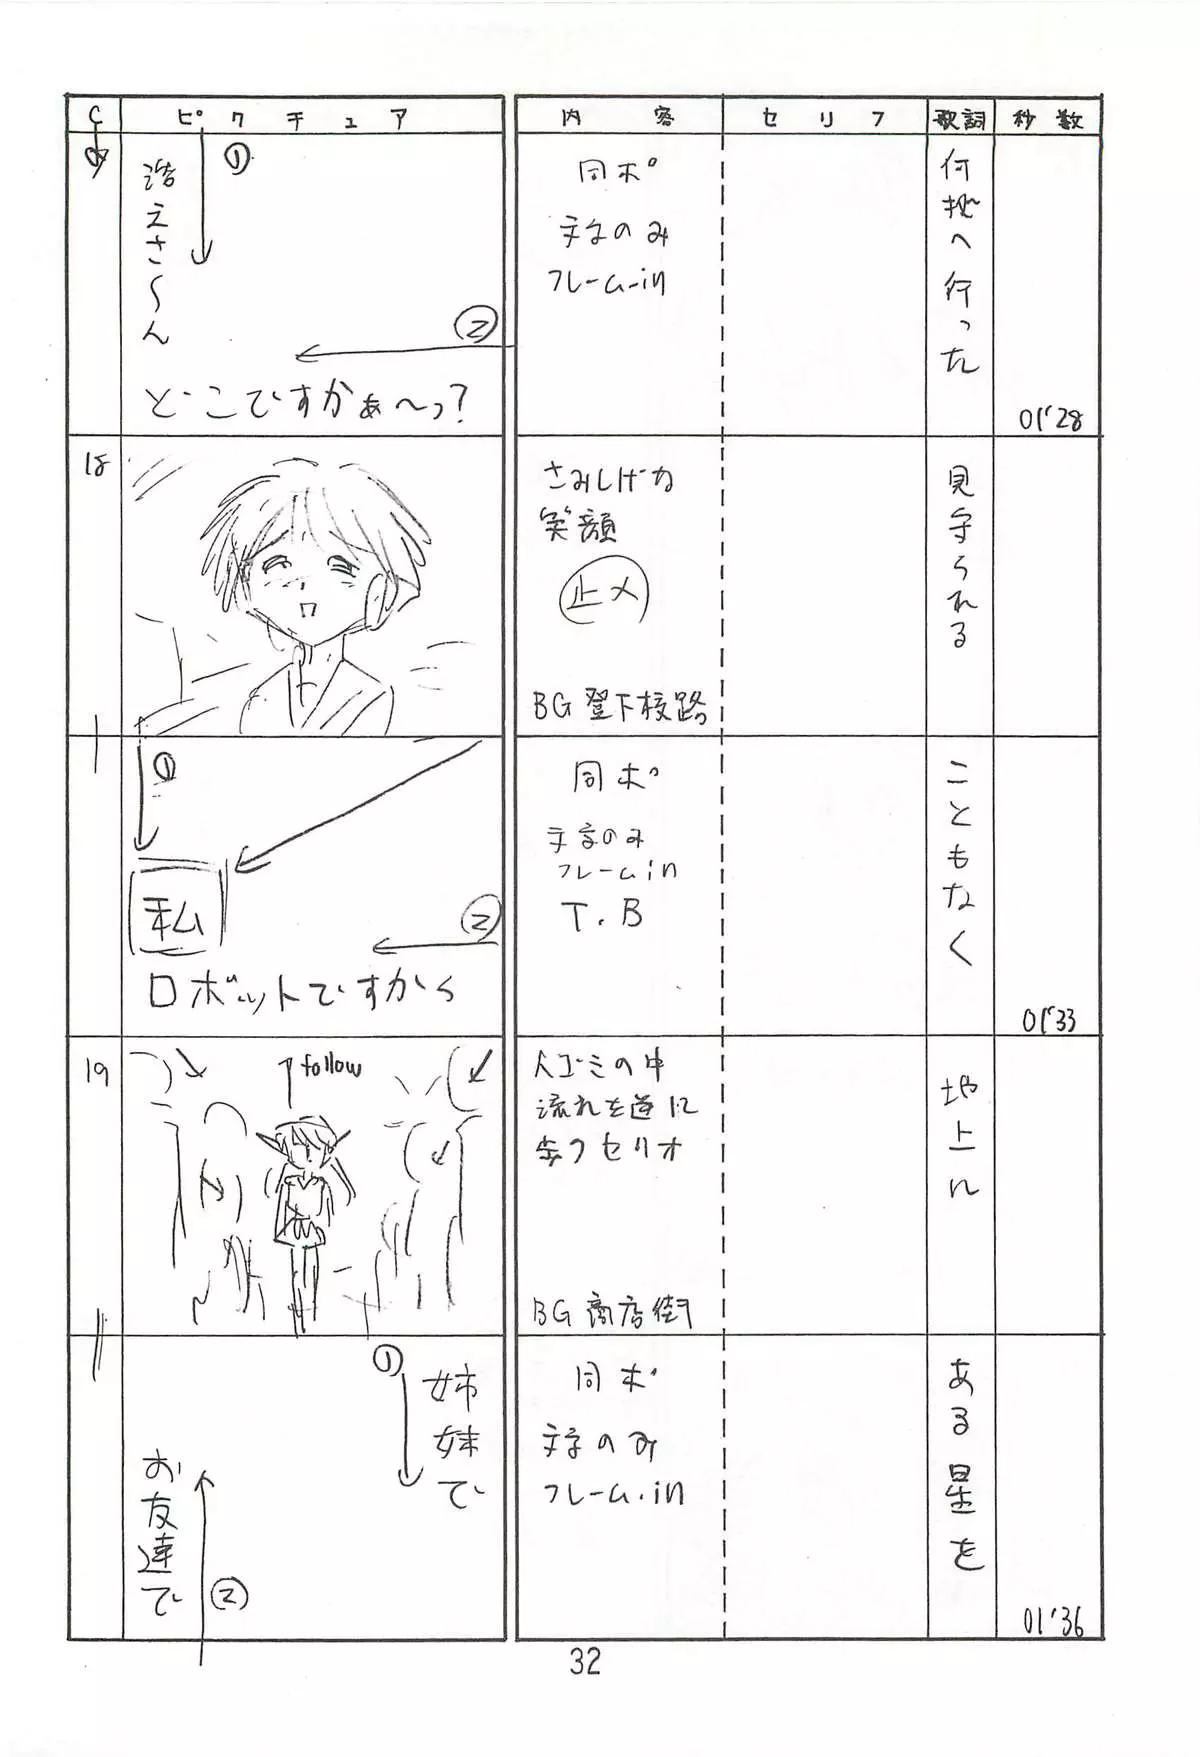 C ピクチュア 内容 セリフ 歌詞 秒数
①
浩えさ～ん
②
どこですかぁ～っ?
同ポ
文字のみ
フレームin
何拠へ行った
01'28
18
さみしげな
笑顔
止メ
BG 登下校路
見守られる
①
私
②
ロボットですから
同ポ
文字のみ
フレームin
T.B
こともなく
01'33
19
follow
人ゴミの中
流れを逆に
歩くセリオ
BG 商店街
地上に
①
姉妹で
お友達で
②
同ポ
文字のみ
フレーム.in
ある星を
01'36
32